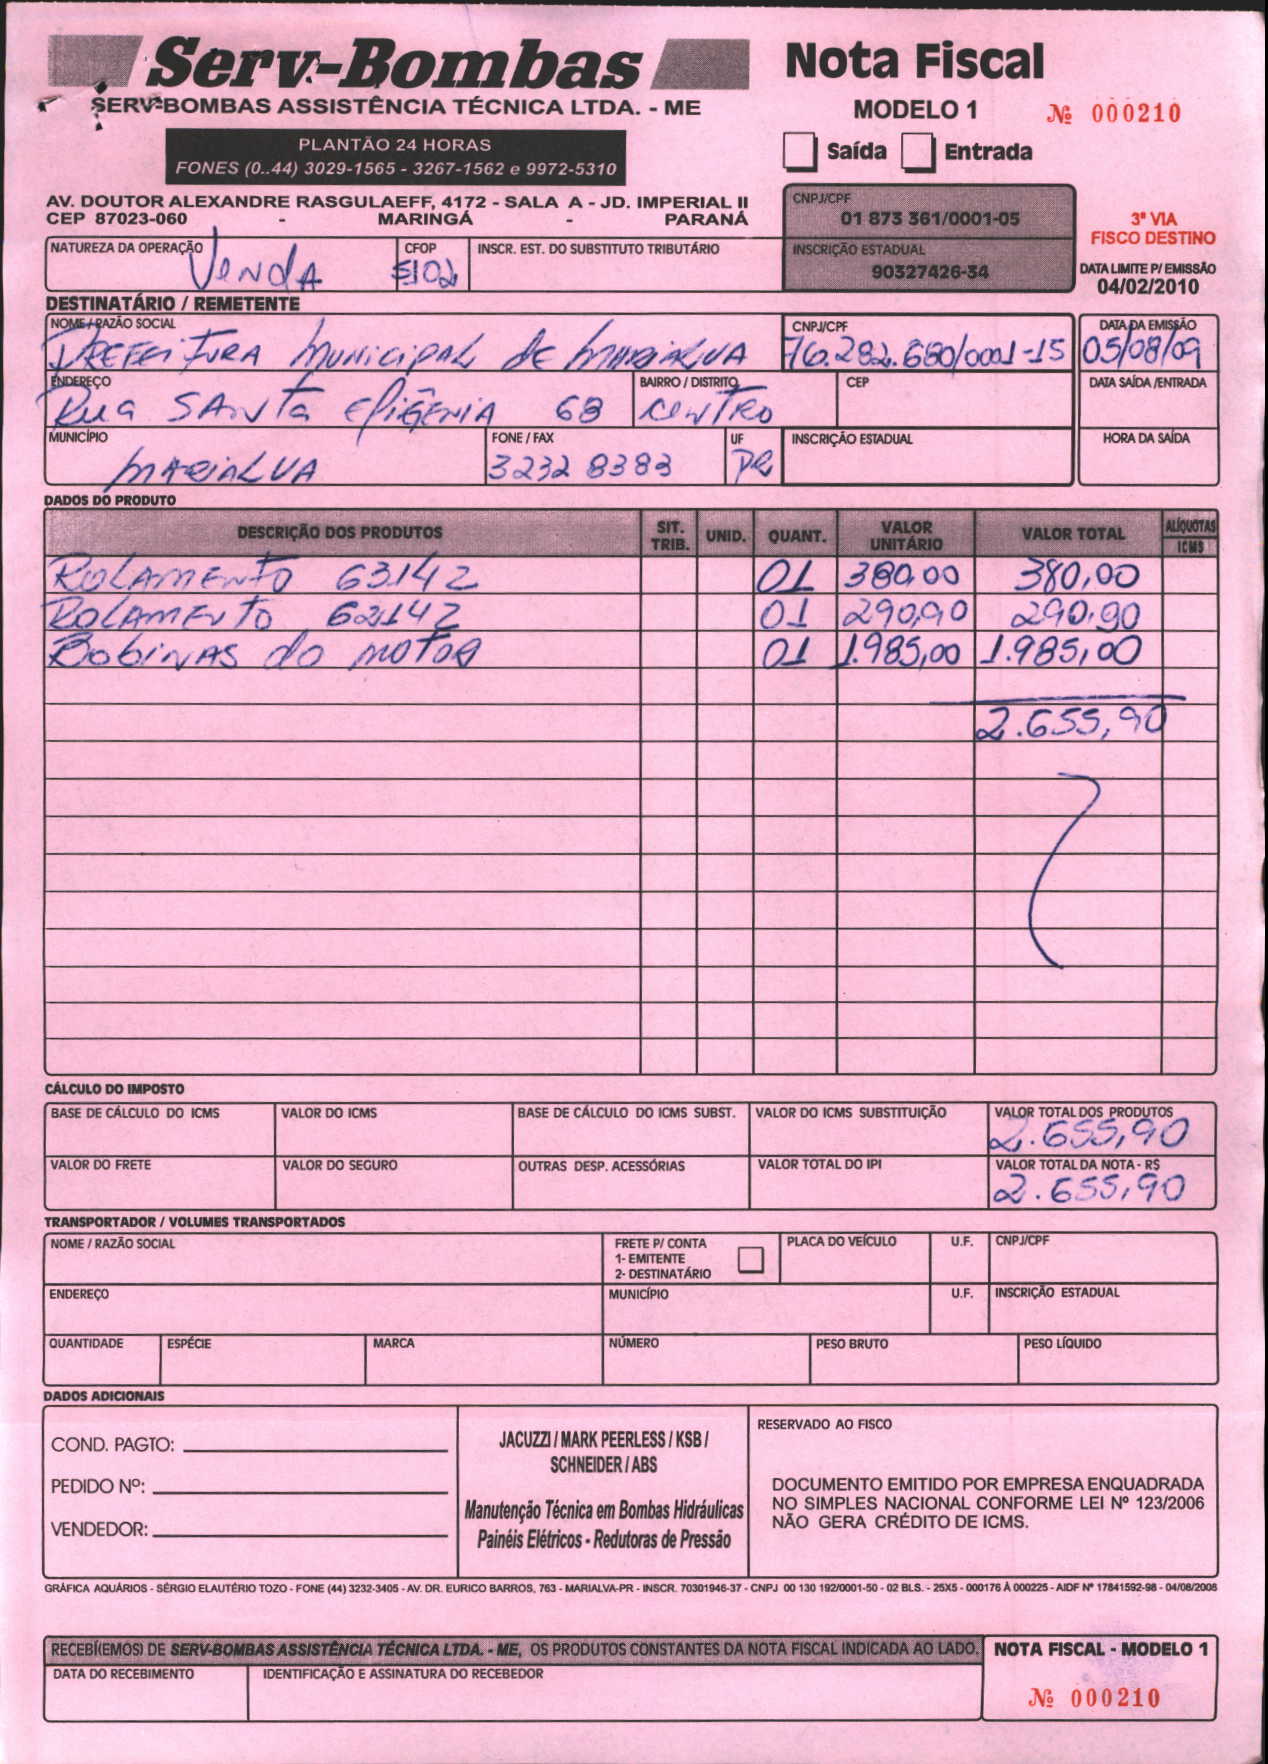 Serv-Bombas
SERV-BOMBAS ASSISTÊNCIA TÉCNICA LTDA. - ME
PLANTÃO 24 HORAS
FONES (0..44) 3029-1565 - 3267-1562 e 9972-5310
AV. DOUTOR ALEXANDRE RASGULAEFF, 4172 - SALA A - JD. IMPERIAL II
CEP 87023-060 - MARINGÁ - PARANÁ
Nota Fiscal
MODELO 1 Nº 000210
Saída Entrada
CNPJ/CPF
01 873 361/0001-05
INSCRIÇÃO ESTADUAL
90327426-34
3ª VIA
FISCO DESTINO
DATA LIMITE P/ EMISSÃO
04/02/2010
NATUREZA DA OPERAÇÃO CFOP INSCR. EST. DO SUBSTITUTO TRIBUTÁRIO
Venda 5102
DESTINATÁRIO / REMETENTE
NOME / RAZÃO SOCIAL CNPJ/CPF DATA DA EMISSÃO
Prefeitura Municipal de Marialva 76.282.680/0001-15 05/08/09
ENDEREÇO BAIRRO / DISTRITO CEP DATA SAÍDA /ENTRADA
Rua Santa Efigênia 68 Centro
MUNICÍPIO FONE / FAX UF INSCRIÇÃO ESTADUAL HORA DA SAÍDA
Marialva 3232 8383 PR
DADOS DO PRODUTO
DESCRIÇÃO DOS PRODUTOS SIT. TRIB. UNID. QUANT. VALOR UNITÁRIO VALOR TOTAL ALÍQUOTAS ICMS
Rolamento 6314Z 01 380,00 380,00
Rolamento 6214Z 01 290,90 290,90
Bobinas do motor 01 1.985,00 1.985,00
2.655,90
CÁLCULO DO IMPOSTO
BASE DE CÁLCULO DO ICMS VALOR DO ICMS BASE DE CÁLCULO DO ICMS SUBST. VALOR DO ICMS SUBSTITUIÇÃO VALOR TOTAL DOS PRODUTOS
2.655,90
VALOR DO FRETE VALOR DO SEGURO OUTRAS DESP. ACESSÓRIAS VALOR TOTAL DO IPI VALOR TOTAL DA NOTA - R$
2.655,90
TRANSPORTADOR / VOLUMES TRANSPORTADOS
NOME / RAZÃO SOCIAL FRETE P/ CONTA PLACA DO VEÍCULO U.F. CNPJ/CPF
1- EMITENTE
2- DESTINATÁRIO
ENDEREÇO MUNICÍPIO U.F. INSCRIÇÃO ESTADUAL
QUANTIDADE ESPÉCIE MARCA NÚMERO PESO BRUTO PESO LÍQUIDO
DADOS ADICIONAIS
COND. PAGTO:
PEDIDO Nº:
VENDEDOR:
JACUZZI / MARK PEERLESS / KSB /
SCHNEIDER / ABS
Manutenção Técnica em Bombas Hidráulicas
Painéis Elétricos - Redutoras de Pressão
RESERVADO AO FISCO
DOCUMENTO EMITIDO POR EMPRESA ENQUADRADA
NO SIMPLES NACIONAL CONFORME LEI Nº 123/2006
NÃO GERA CRÉDITO DE ICMS.
GRÁFICA AQUÁRIOS - SÉRGIO ELAUTÉRIO TOZO - FONE (44) 3232-3405 - AV. DR. EURICO BARROS, 763 - MARIALVA-PR - INSCR. 70301946-37 - CNPJ 00 130 192/0001-50 - 02 BLS. - 25X5 - 000176 À 000225 - AIDF Nº 17841592-98 - 04/08/2008
RECEBI(EMOS) DE SERV-BOMBAS ASSISTÊNCIA TÉCNICA LTDA. - ME, OS PRODUTOS CONSTANTES DA NOTA FISCAL INDICADA AO LADO.
DATA DO RECEBIMENTO IDENTIFICAÇÃO E ASSINATURA DO RECEBEDOR
NOTA FISCAL - MODELO 1
Nº 000210